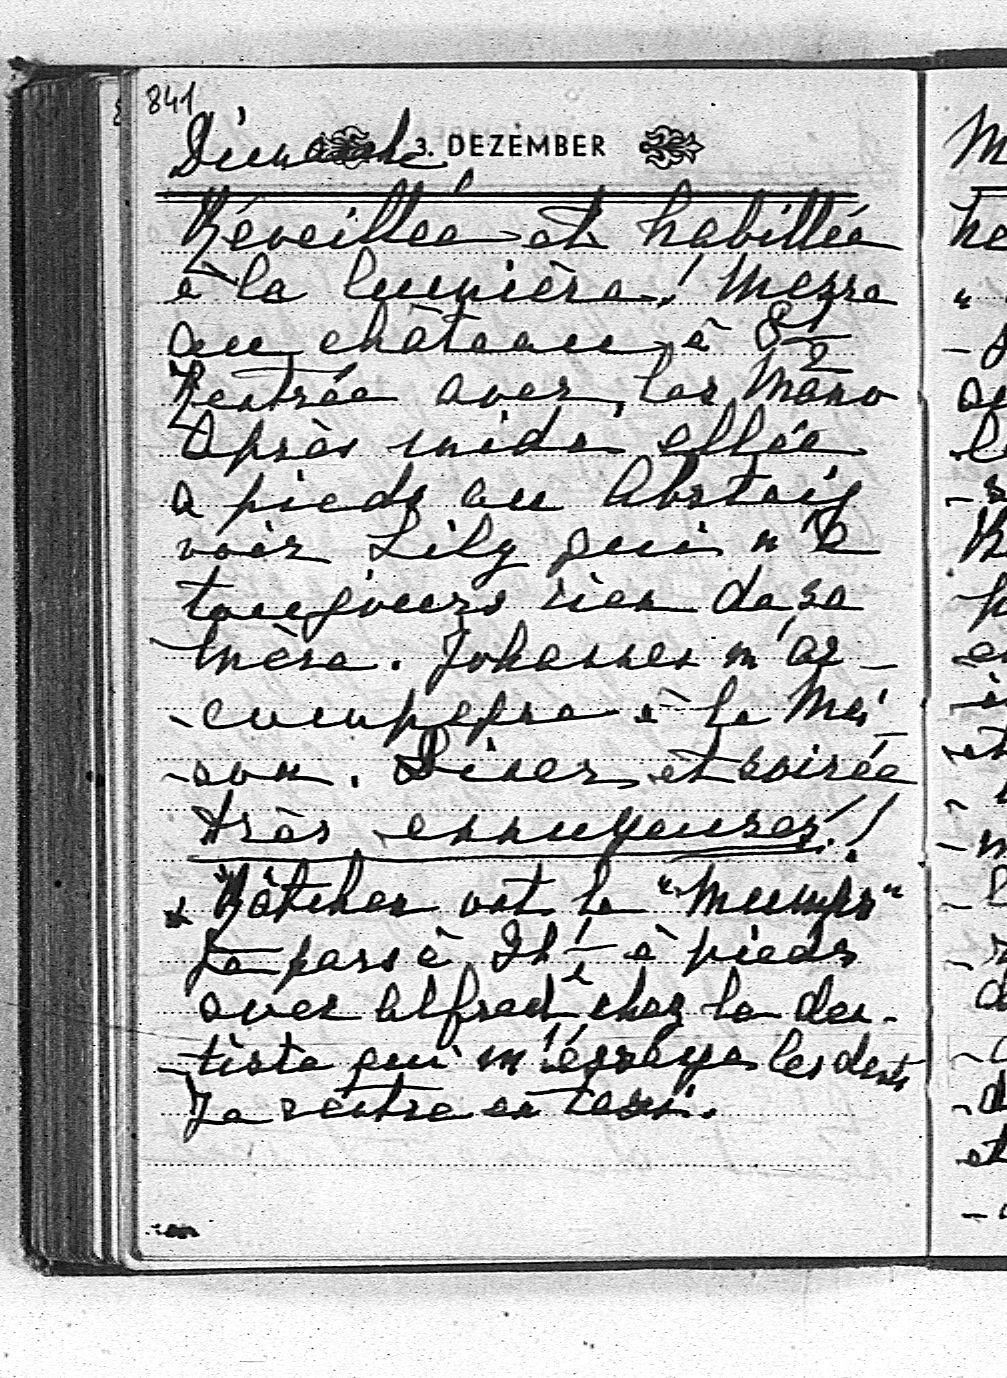 841
Dimanche 3. DEZEMBER
Réveillée et habillée
à la lumière! Messe
au château à 8 1/2
Rentrée avec les Mano
Après midi allée
a pieds au Absteig
voir Lily qui n'a
toujours rien de sa
mère. Johannes m'ac-
-compagne à la Mai-
-son. Diner et soirée
très ennuyeuses!!
* vot le "Mumps"
Je pars à 2h 1/2 à pieds
avec Alfred chez le den-
-tiste qui m'éssaye les dents
Je rentre en taxi.